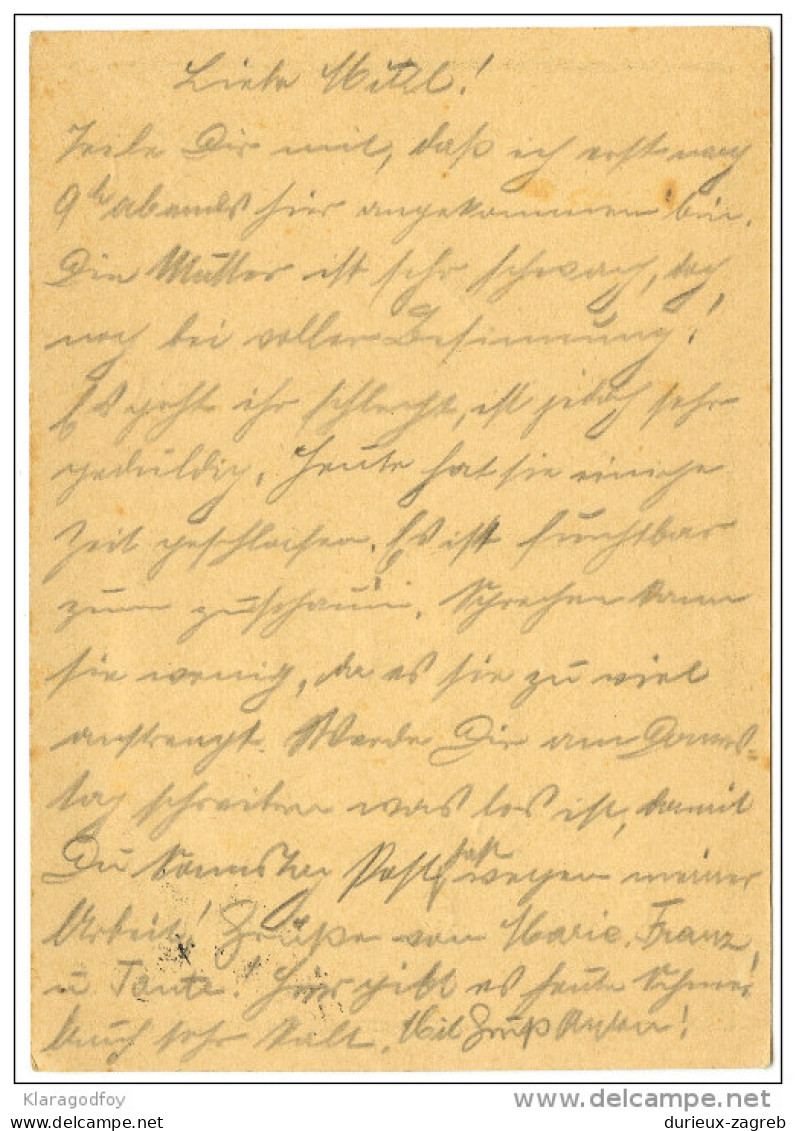 Liebe Mitzl!
Teile Dir mit, daß ich erst nach
9h abends hier angekommen bin.
Die Mutter ist sehr schwach, doch
noch bei voller Besinnung!
Es geht ihr schlecht, ist jedoch sehr
geduldig. Heute hat sie einige
Zeit geschlafen. Es ist furchtbar
zum zuschauen. Sprechen kann
sie wenig, da es sie zu viel
anstrengt. Werde Dir am Donners-
tag schreiben was los ist, damit
Du Samstag Post hast wegen meiner
Arbeit! Grüße von Marie, Franz,
u. Tante! Hier gibt es heute Schnee
Auch sehr kalt. Mit Gruß!
Klaragodfoy
delcampe.net
durieux-zagreb